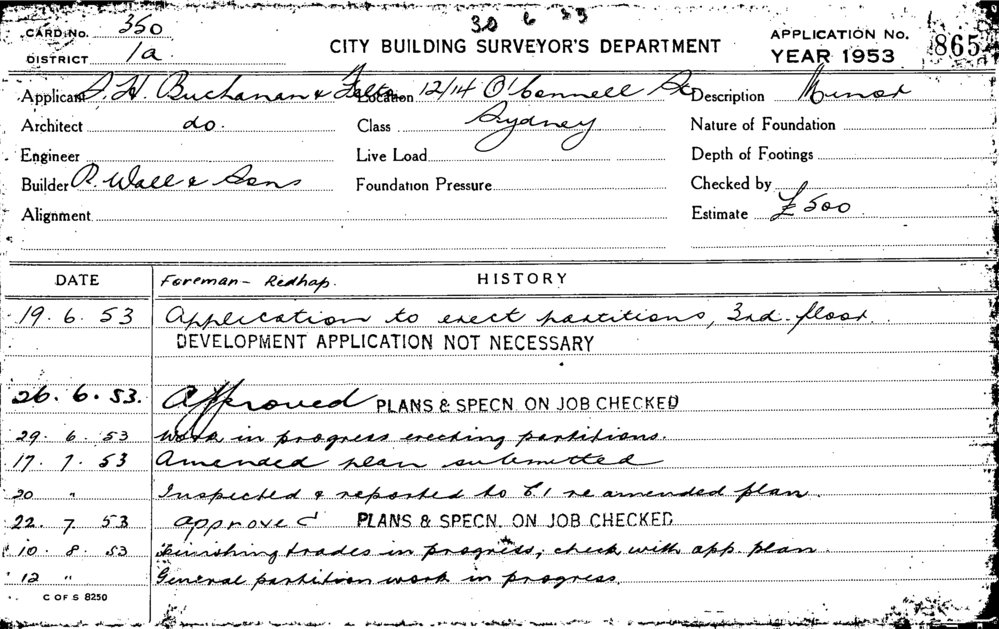 30 6 53
CARD No. 350
DISTRICT 1a
CITY BUILDING SURVEYOR'S DEPARTMENT
APPLICATION No. 865
YEAR 1953
Applicant S. H. Buchanan & Location 12/14 O'Connell St Description Minor
Architect do. Class Sydney Nature of Foundation
Engineer Live Load Depth of Footings
Builder R. Wall & Sons Foundation Pressure Checked by
Alignment Estimate £500
DATE Foreman - Redhap. HISTORY
19. 6. 53 Application to erect partitions, 3rd. floor.
DEVELOPMENT APPLICATION NOT NECESSARY
26. 6. 53. Approved PLANS & SPECN. ON JOB CHECKED
29. 6. 53 Work in progress erecting partitions.
17. 7. 53 Amended plan submitted
20 " Inspected & reported to re amended plan.
22. 7. 53 approved PLANS & SPECN. ON JOB CHECKED
10. 8. 53 Finishing trades in progress, check with app. plan.
12 " General partition work in progress.
C OF S 8250